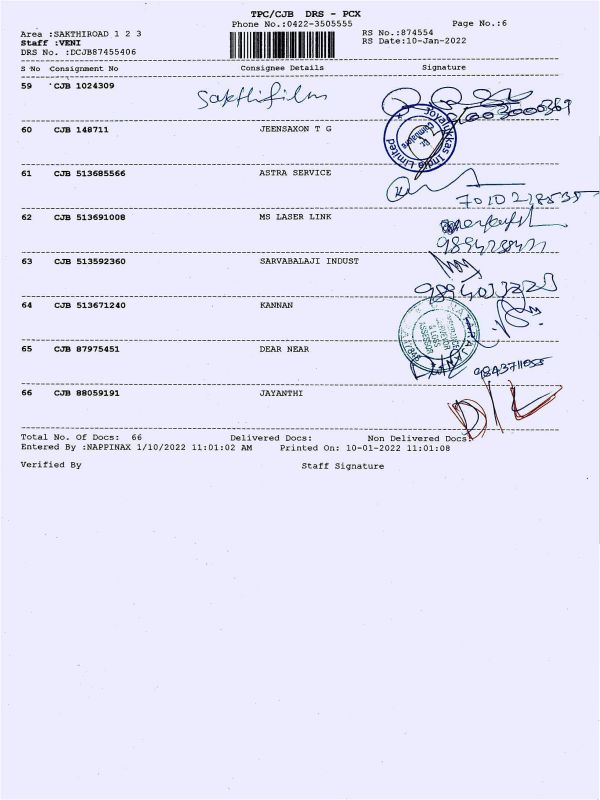 TPC/CJB DRS - PCX
Phone No.:0422-3505555 Page No.:6
Area :SAKTHIROAD 1 2 3 RS No.:874554
Staff :VENI RS Date:10-Jan-2022
DRS No. :DCJB87455406
S No Consignment No Consignee Details Signature
59 CJB 1024309 Sakthifilm
60 CJB 148711 JEENSAXON T G
Joyalukkas India Limited
Coimbatore
61 CJB 513685566 ASTRA SERVICE
7010218535
62 CJB 513691008 MS LASER LINK
63 CJB 513592360 SARVABALAJI INDUST
64 CJB 513671240 KANNAN
INSURANCE
SURVEYOR
& LOSS
ASSESSOR
65 CJB 87975451 DEAR NEAR
9843711055
66 CJB 88059191 JAYANTHI
D/L
Total No. Of Docs: 66 Delivered Docs: Non Delivered Docs:
Entered By :NAPPINAX 1/10/2022 11:01:02 AM Printed On: 10-01-2022 11:01:08
Verified By Staff Signature